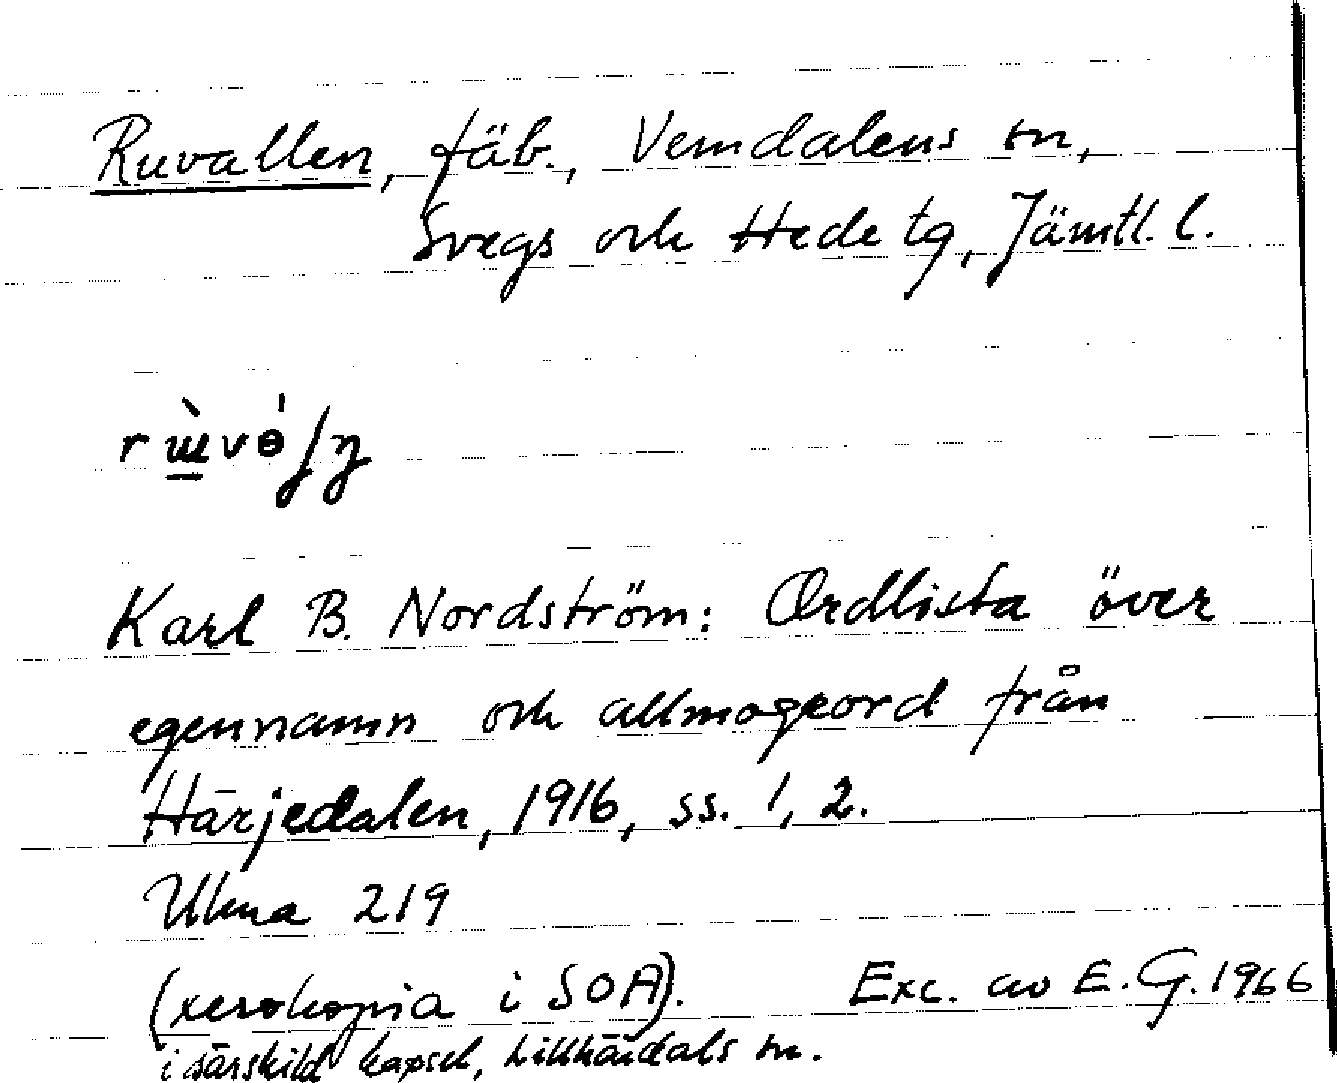 Ruvallen, fäb., Vemdalens sn,
Svegs och Hede tg, Jämtl. l.
Karl B. Nordström: Ordlista över
egennamn och allmogeord från
Härjedalen, 1916, ss. 1, 2.
Ulma 219
(xerokopia i SOA). Exc. av E. G. 1966
i särskild kapsel, Lillhärdals sn.